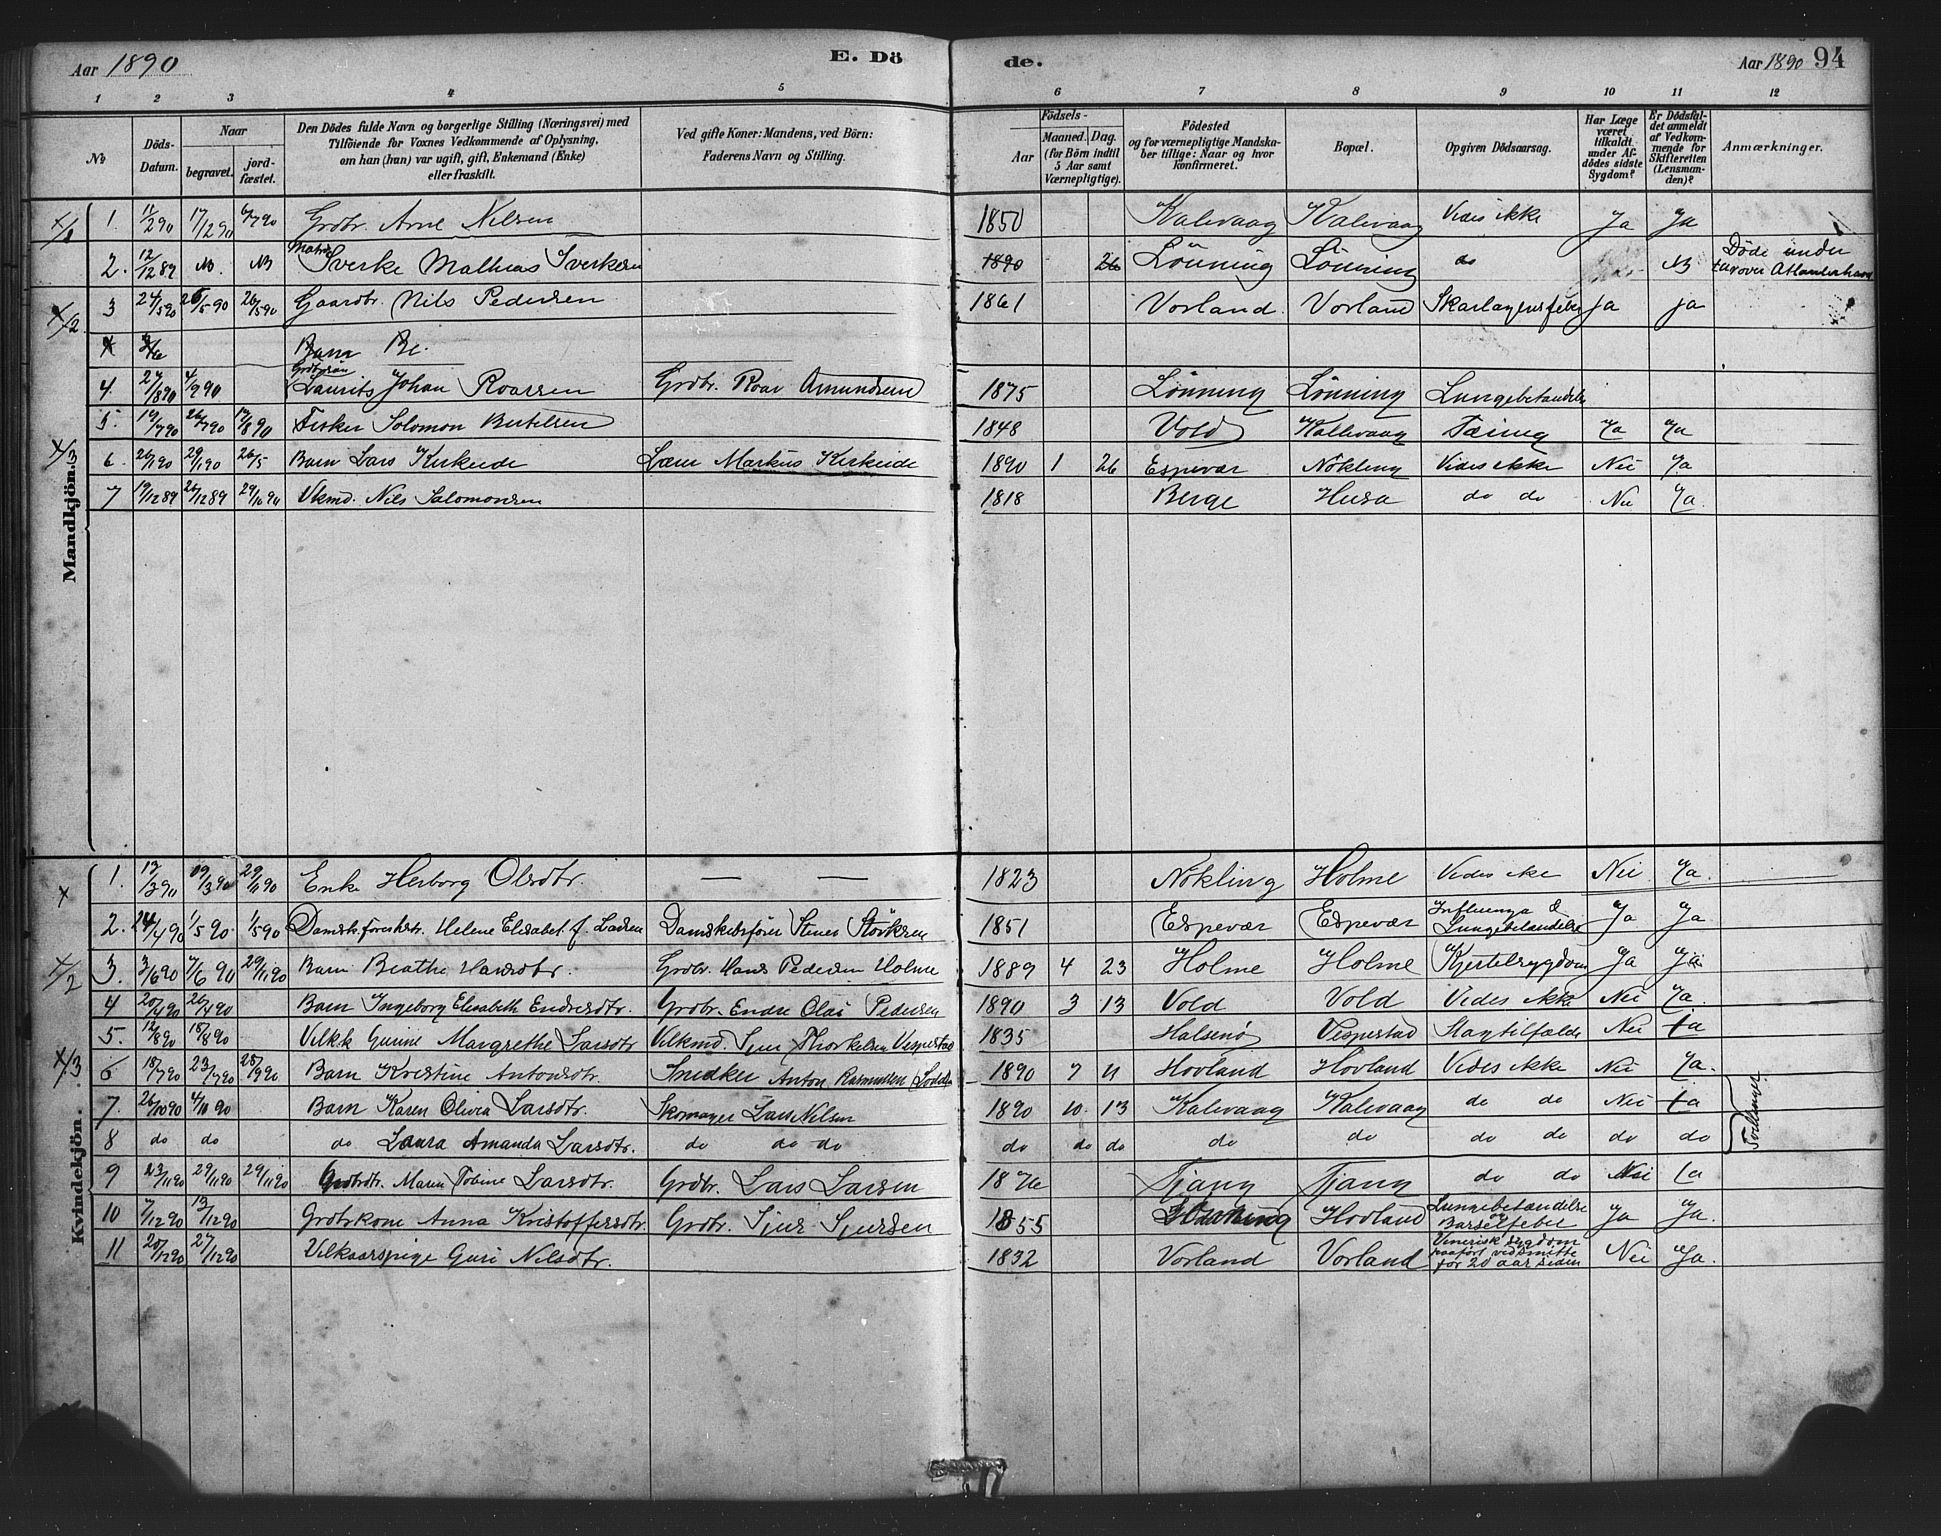 Aar 1890 E. Dö de. Aar 1890 94
1 2 3 4 5 6 7 8 9 10 11 12
No | Döds-Datum. | Naar begravet. | jord-fæstet. | Den Dödes fulde Navn og borgerlige Stilling (Næringsvei) med Tilföiende for Voxnes Vedkommende af Oplysning, om han (hun) var ugift, gift, Enkemand (Enke) eller fraskilt. | Ved gifte Koner: Mandens, ved Börn: Faderens Navn og Stilling. | Födsels- Aar | Maaned. | Dag. (for Börn indtil 5 Aar samt Værnepligtige). | Födested og for værnepligtige Mandskaber tillige: Naar og hvor konfirmeret. | Bopæl. | Opgiven Dödsaarsag. | Har Læge været tilkaldt under Afdødes sidste Sygdom? | Er Dödsfaldet anmeldt af Vedkommende for Skifteretten (Lensmanden)? | Anmærkninger.
Mandkjön.
1. 11/2 90 17/2 90 Grdbr. Arne Nilsen 1850 Kalevaag Kalevaag Vides ikke Ja Ja
2. 12/12 89 Matros Sverke Mathias Sverksen 1890 26 Lönning Lönning do Döde under Atlanterhavet
3 24/5 90 26/5 90 26/5 90 Gaardbr. Nils Pedersen 1861 Vorland. Vorland Skarlagensfeber Ja Ja
Barn Be.
4. 27/8 90 4/9 90 Grdbrsøn Laurits Johan Roarsen Grdbr. Roar Amundsen 1875 Lönning Lönning Lungebetændelse
5. 19/7 90 26/7 90 17/8 90 Fisker Solomon Bertelsen 1848 Vold Kallevaag Tæring Ja Ja
6. 26/1 90 29/1 90 26/5 Barn Lars Kirkeide Lærer Markus Kirkeide 1890 1 26 Espevær Nökling Vides ikke Nei Ja
7 19/12 89 26/12 89 29/10 90 Vkmd. Nils Salomonsen 1818 Berge Husa do do Nei Ja.
Kvindekjön.
1. 13/3 90 19/3 90 29/11 90 Enke Herborg Olsdtr. — — 1823 Nökling Holme Vides ike Nei Ja.
2. 24/4 90 1/5 90 1/5 90 Helene Elisabet f. Larsen Störksen 1851 Espevær Espevær Influenza & Lungebetændelse Ja Ja.
3. 3/6 90 7/6 90 29/11 90 Barn Beathe Hansdtr. Grdbr. Hans Pedersen Holme 1889 4 23 Holme Holme Kjertelsygdom Ja Ja
4 20/4 90 26/4 90 Barn Ingeborg Elisabeth Endresdtr. Grdbr. Endre Olai Pedersen 1890 3 13 Vold Vold Vides ikke Nei Ja.
5. 12/8 90 18/8 90 Vilkk Gurine Margrethe Larsdtr Vilkmd. Sjur Thorkelsen Vespestad 1835 Halsenø Vespestad Slagtilfælde Nei Ja
6 18/7 90 23/7 90 28/9 90 Barn Kristine Antonsdtr. Snedker Anton Rasmussen 1890 7 11 Hovland Hovland Vides ikke Nei Ja.
7. 26/10 90 4/11 90 Barn Karen Olivia Larsdtr. Skomager Lars Nilsen 1890 10. 13 Kalevaag Kalevaag do do Nei Ja
Tvillinger
8 do do do Laura Amanda Larsdtr. do do do do do do do do do do do do
9 23/11 90 29/11 90 29/11 90 Grdbrdtr. Maren Tobine Larsdtr. Grdbr. Lars Larsen 1876 Tjang Tjang do do Nei Ja
10 7/12 90 13/12 90 Grdbrkone Anna Kristoffersdtr. Grdbr. Sjur Sjursen 1855 Hovland Lungebetændelse og Barselfeber Ja Ja.
11 20/12 90 27/12 90 Vilkaarspige Guri Nilsdtr. 1832 Vorland Vorland Venerisk sygdom paaført ved Smitte for 20 aar siden Nei Ja.